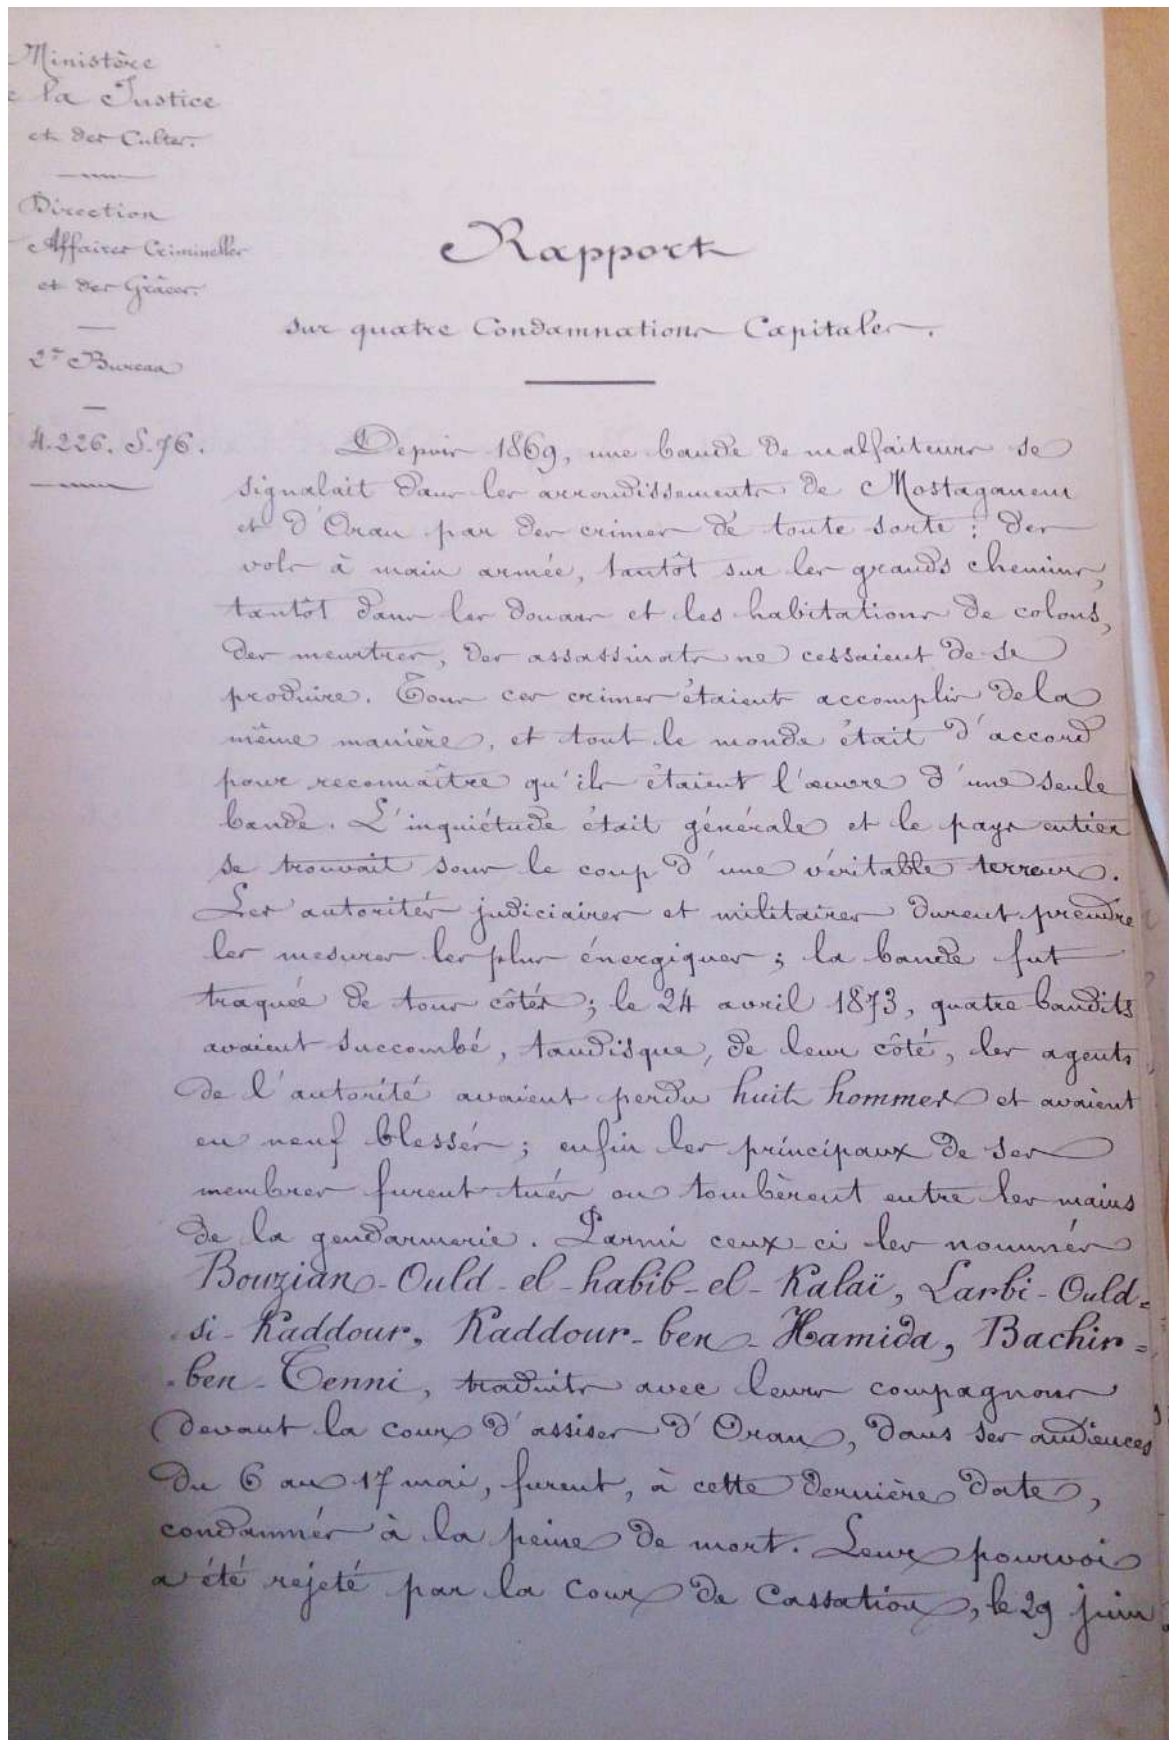 Ministère
la Justice
et des Cultes.
Direction
Affaires Criminelles
et des Grâces.
2e Bureau
4.226. S.76.
Rapport
sur quatre Condamnations Capitales.
Depuis 1869, une bande de malfaiteurs se
signalait dans les arrondissements de Mostaganem
et d'Oran par des crimes de toute sorte : des
vols à main armée, tantôt sur les grands chemins,
tantôt dans les douars et les habitations de colons,
des meurtres, des assassinats ne cessaient de se
produire. Tous ces crimes étaient accomplis de la
même manière, et tout le monde était d'accord
pour reconnaître qu'ils étaient l'œuvre d'une seule
bande. L'inquiétude était générale et le pays entier
se trouvait sous le coup d'une véritable terreur.
Les autorités judiciaires et militaires durent prendre
les mesures les plus énergiques ; la bande fut
traquée de tous côtés ; le 24 avril 1873, quatre bandits
avaient succombé, tandisque, de leur côté, les agents
de l'autorité avaient perdu huit hommes et avaient
eu neuf blessés ; enfin les principaux de ses
membres furent tués ou tombèrent entre les mains
de la gendarmerie. Parmi ceux-ci les nommés
Bouzian-Ould-el-habib-el-Kalaï, Larbi-Ould=
si-Kaddour, Kaddour-ben-Hamida, Bachir=
=ben-Tenni, traduits avec leurs compagnons
devant la cour d'assises d'Oran, dans ses audiences
du 6 au 17 mai, furent, à cette dernière date,
condamnés à la peine de mort. Leur pourvoi
a été rejeté par la Cour de Cassation, le 29 juin